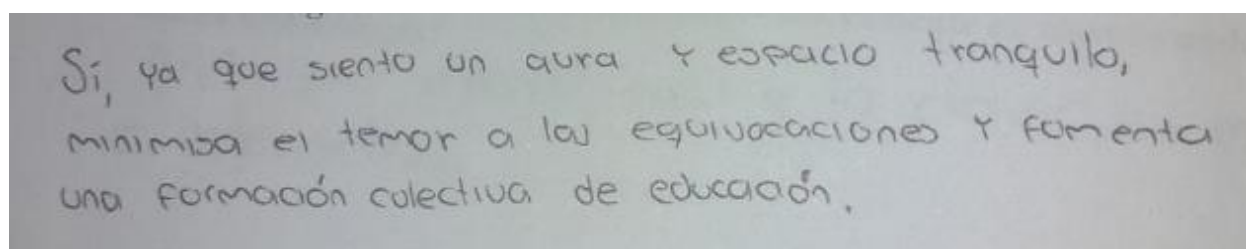 Sí, ya que siento un aura y espacio tranquilo,
minimisa el temor a las equivocaciones y fomenta
una formación colectiva de educación.